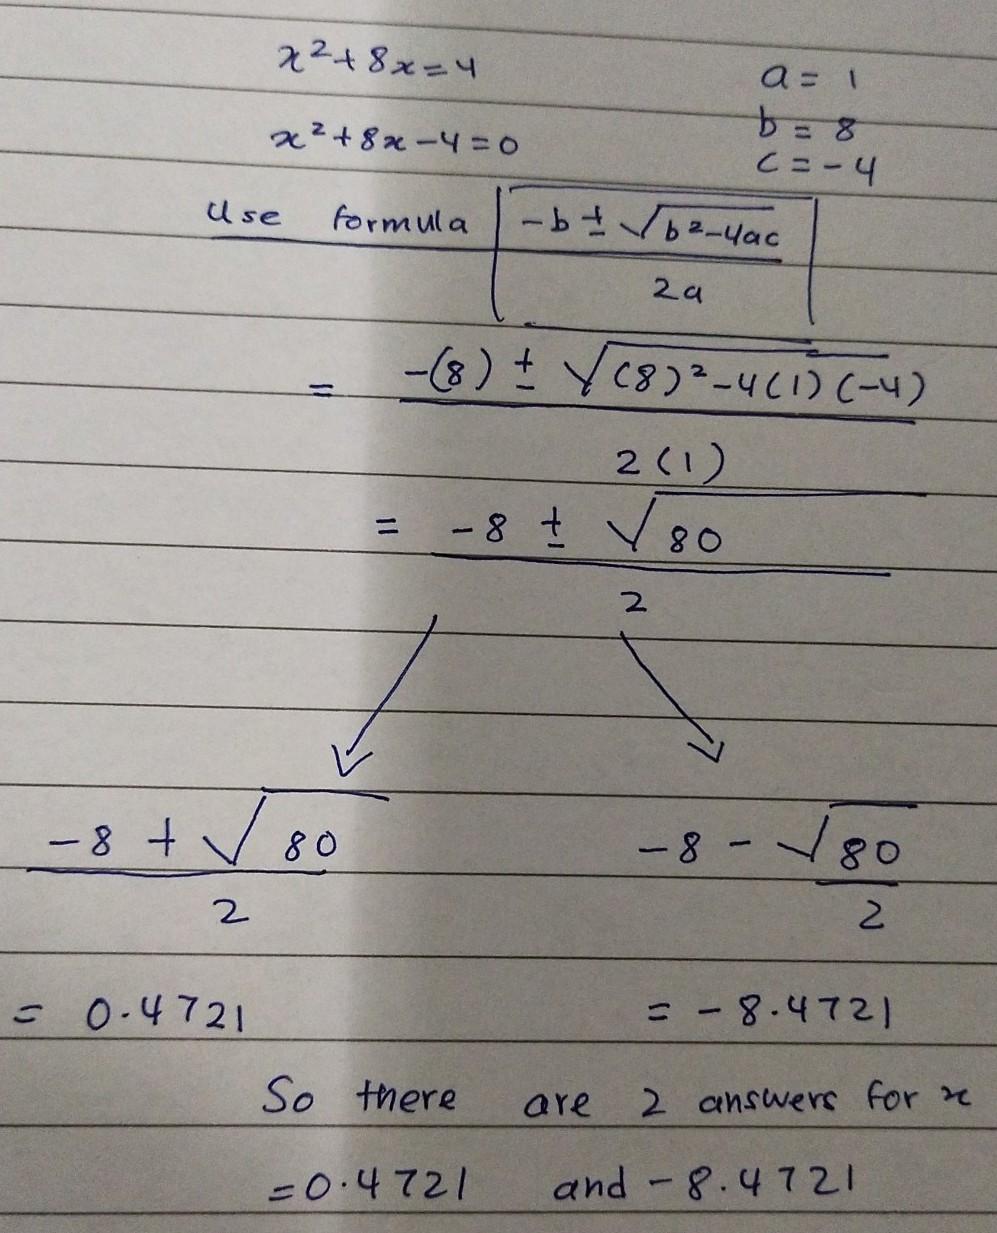 x² + 8x = 4
a = 1
x² + 8x - 4 = 0
b = 8
c = -4
Use formula -b ± √b²-4ac
2a
= -(8) ± √(8)²-4(1)(-4)
2(1)
= -8 ± √80
2
-8 + √80 -8 - √80
2 2
= 0.4721 = -8.4721
So there are 2 answers for x
= 0.4721 and -8.4721